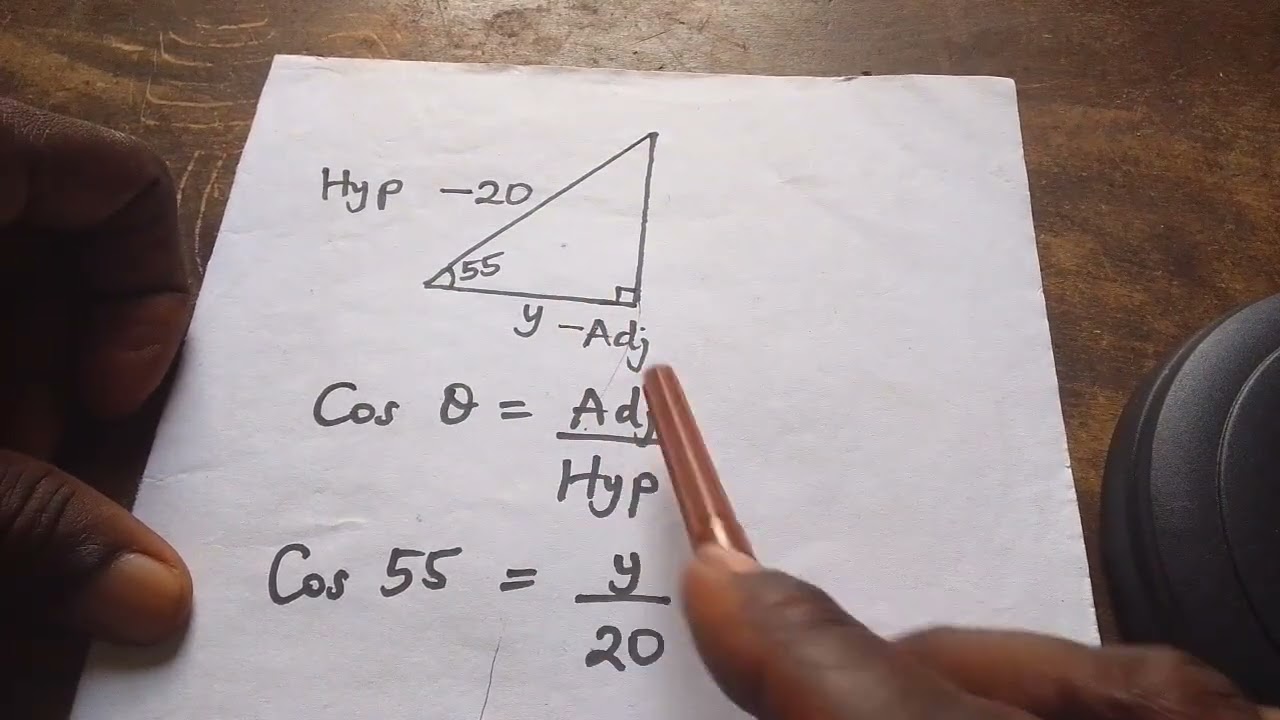 Hyp –20
55
y –Adj
Cos θ = Adj
Hyp
Cos 55 = y
20